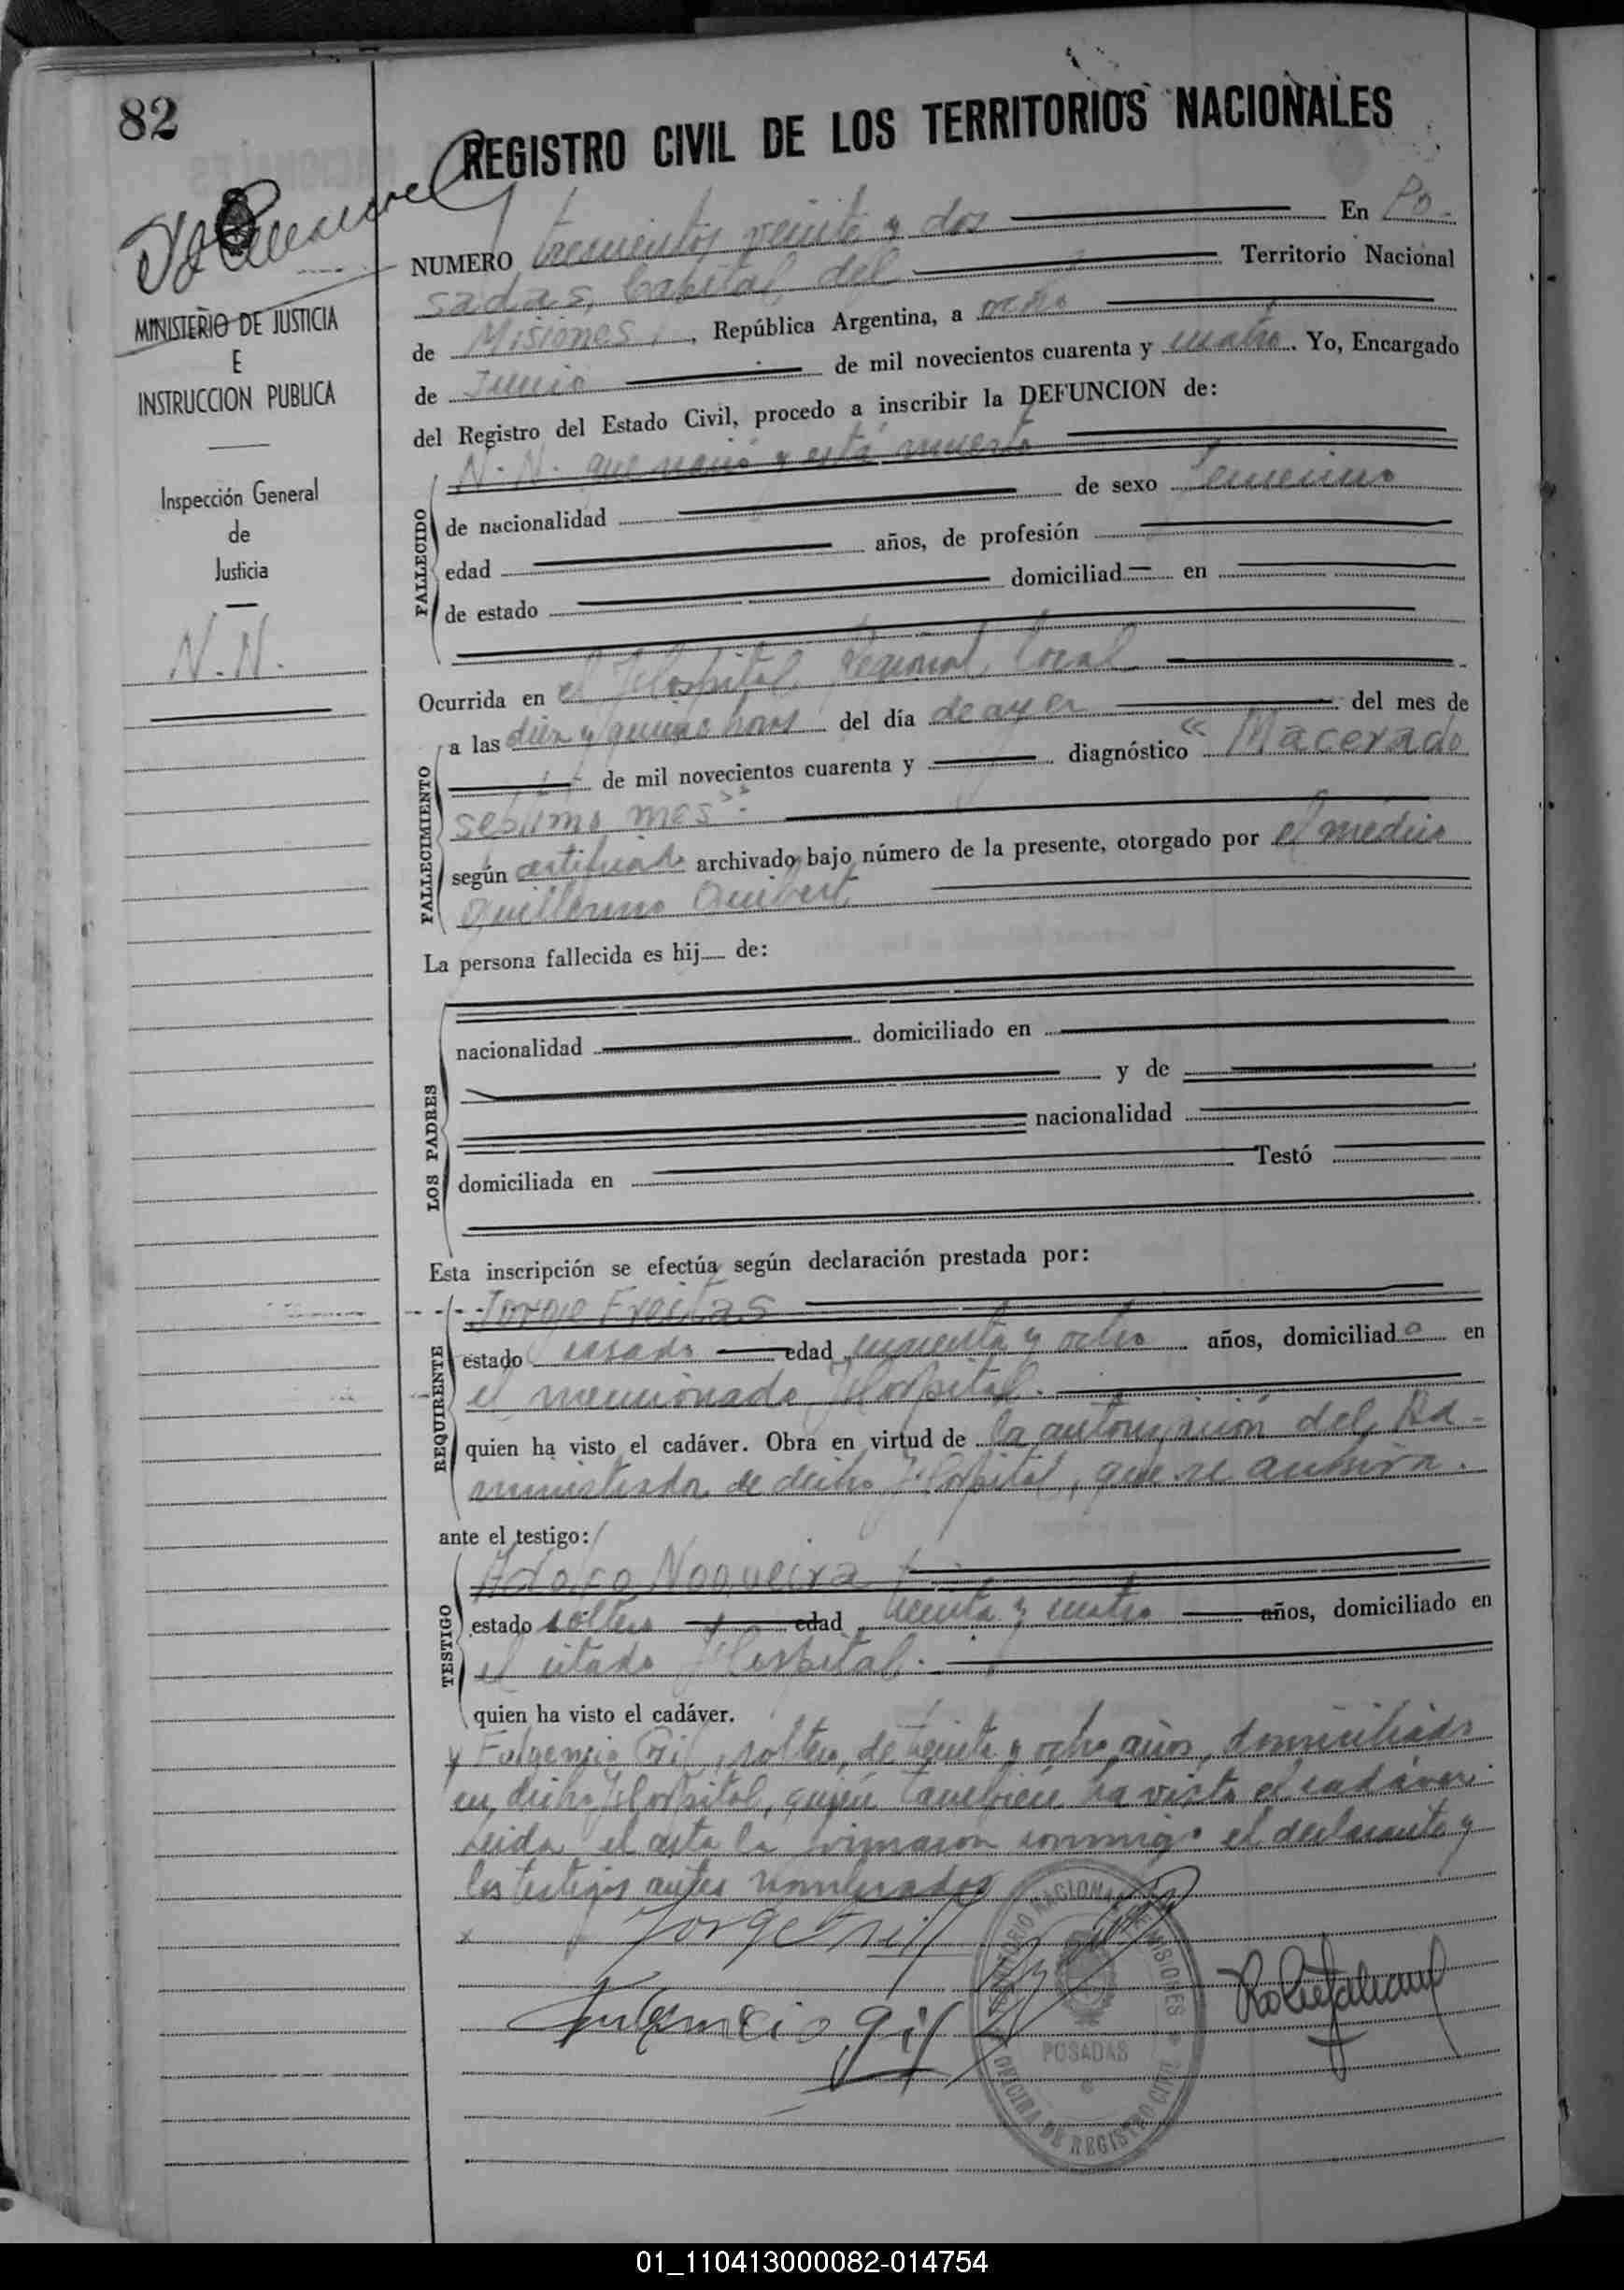 82
REGISTRO CIVIL DE LOS TERRITORIOS NACIONALES
MINISTERIO DE JUSTICIA
E
INSTRUCCION PUBLICA
Inspección General
de
Justicia
N. N.
NUMERO trescientos veinte y dos En Po-
sadas, Capital del Territorio Nacional
de Misiones, República Argentina, a ocho
de Junio de mil novecientos cuarenta y cuatro. Yo, Encargado
del Registro del Estado Civil, procedo a inscribir la DEFUNCION de:
N. N. que nació y está muerto
FALLECIDO
de nacionalidad de sexo femenino
edad años, de profesión
de estado domiciliad en
Ocurrida en el Hospital Regional local
FALLECIMIENTO
a las diez y quince horas del día de ayer del mes de
de mil novecientos cuarenta y diagnóstico "Macerado
séptimo mes".
según certificado archivado bajo número de la presente, otorgado por el médico
Guillermo
La persona fallecida es hij de:
LOS PADRES
nacionalidad domiciliado en
y de
nacionalidad
domiciliada en Testó
Esta inscripción se efectúa según declaración prestada por:
REQUIRENTE
Jorge Freitas
estado casado edad cuarenta y ocho años, domiciliado en
el mencionado Hospital.
quien ha visto el cadáver. Obra en virtud de la autorización del Ad-
ministrador de dicho Hospital, que se archiva.
ante el testigo:
TESTIGO
Adolfo Nogueira
estado soltero edad treinta y cuatro años, domiciliado en
el citado Hospital.
quien ha visto el cadáver.
y Fulgencio Gil, soltero, de treinta y ocho años, domiciliado
en dicho Hospital, quien también ha visto el cadáver.
Leida el acta la firmaron conmigo el declarante y
los testigos antes nombrados
Jorge
Fulgencio gil
TERRITORIO NACIONAL DE MISIONES
POSADAS
OFICINA DE REGISTRO CIVIL
01_110413000082-014754